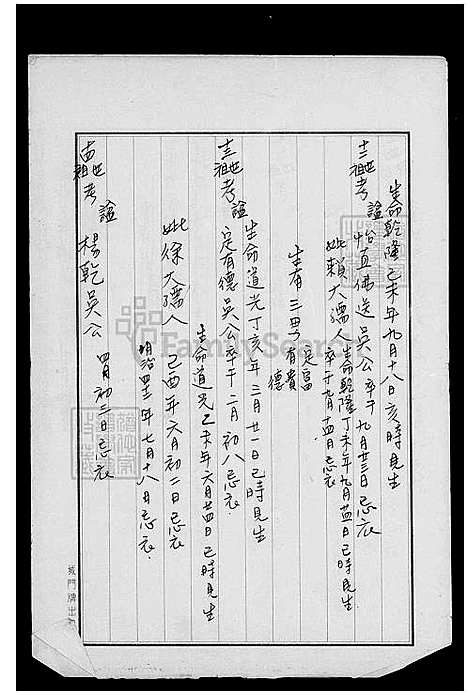 生命乾隆乙未年九月十八日亥時見生
十二世祖考諡怡直佛送吳公卒于九月廿三日忌衣
妣賴大孺人生命乾隆丁未年九月廿四日巳時見生
卒于九月十四日忌衣
生有三男
定富
有貴
德
生命道光丁亥年三月廿一日巳時見生
十三世祖考諡定有德吳公卒于二月初八忌衣
生命道光乙未年六月廿四日巳時見生
妣徐大孺人己酉年六月初二日忌衣
明治四三年七月十八日忌衣
十四世祖考諡楊乾吳公四月初三日忌衣
FamilySearch